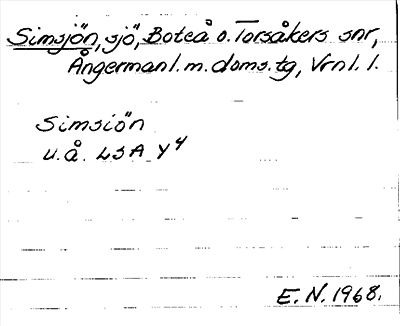 Simsjön, sjö, Boteå o. Torsåkers snr,
Ångermanl. m. doms.tg, Vrnl. l.
Simsiön
u.å. LSA Y4
E.N. 1968.